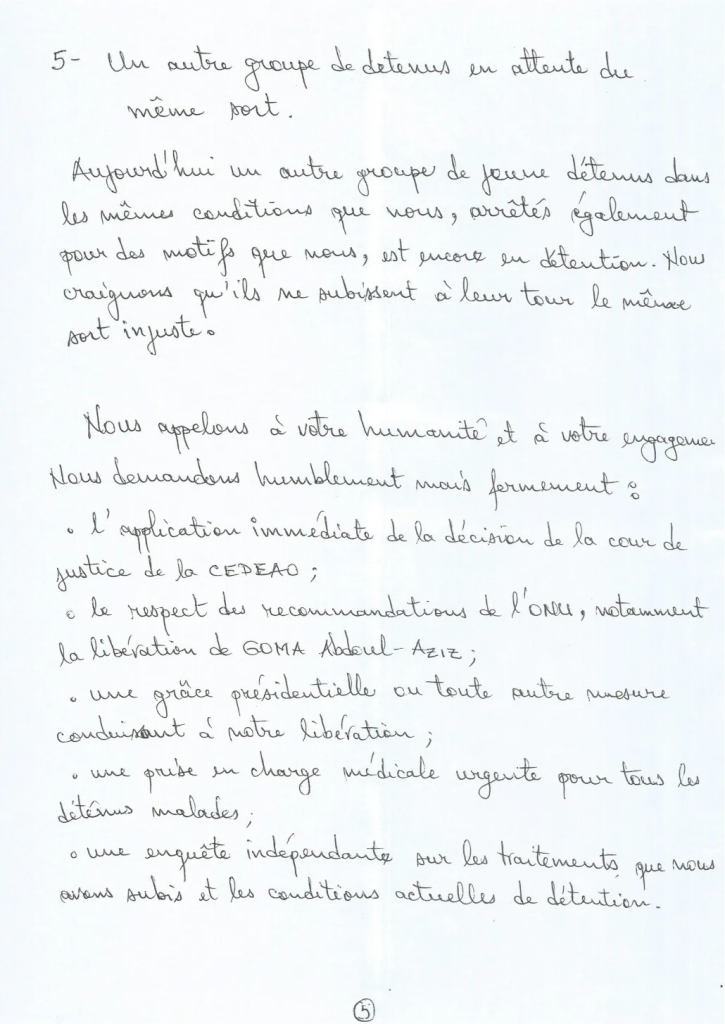 5- Un autre groupe de detenus en attente du
même sort.
Aujourd'hui un autre groupe de jeune détenus dans
les mêmes conditions que nous, arrêtés également
pour des motifs que nous, est encore en détention. Nous
craignons qu'ils ne subissent à leur tour le même
sort injuste.
Nous appelons à votre humanité et à votre engageme
Nous demandons humblement mais fermement :
• l'application immédiate de la décision de la cour de
justice de la CEDEAO ;
• le respect des recommandations de l'ONU, notamment
la libération de GOMA Abdoul-AZIZ ;
• une grâce présidentielle ou toute autre mesure
conduisant à notre libération ;
• une prise en charge médicale urgente pour tous les
déténus malades ;
• une enquête indépendante sur les traitements que nous
avons subis et les conditions actuelles de détention.
5